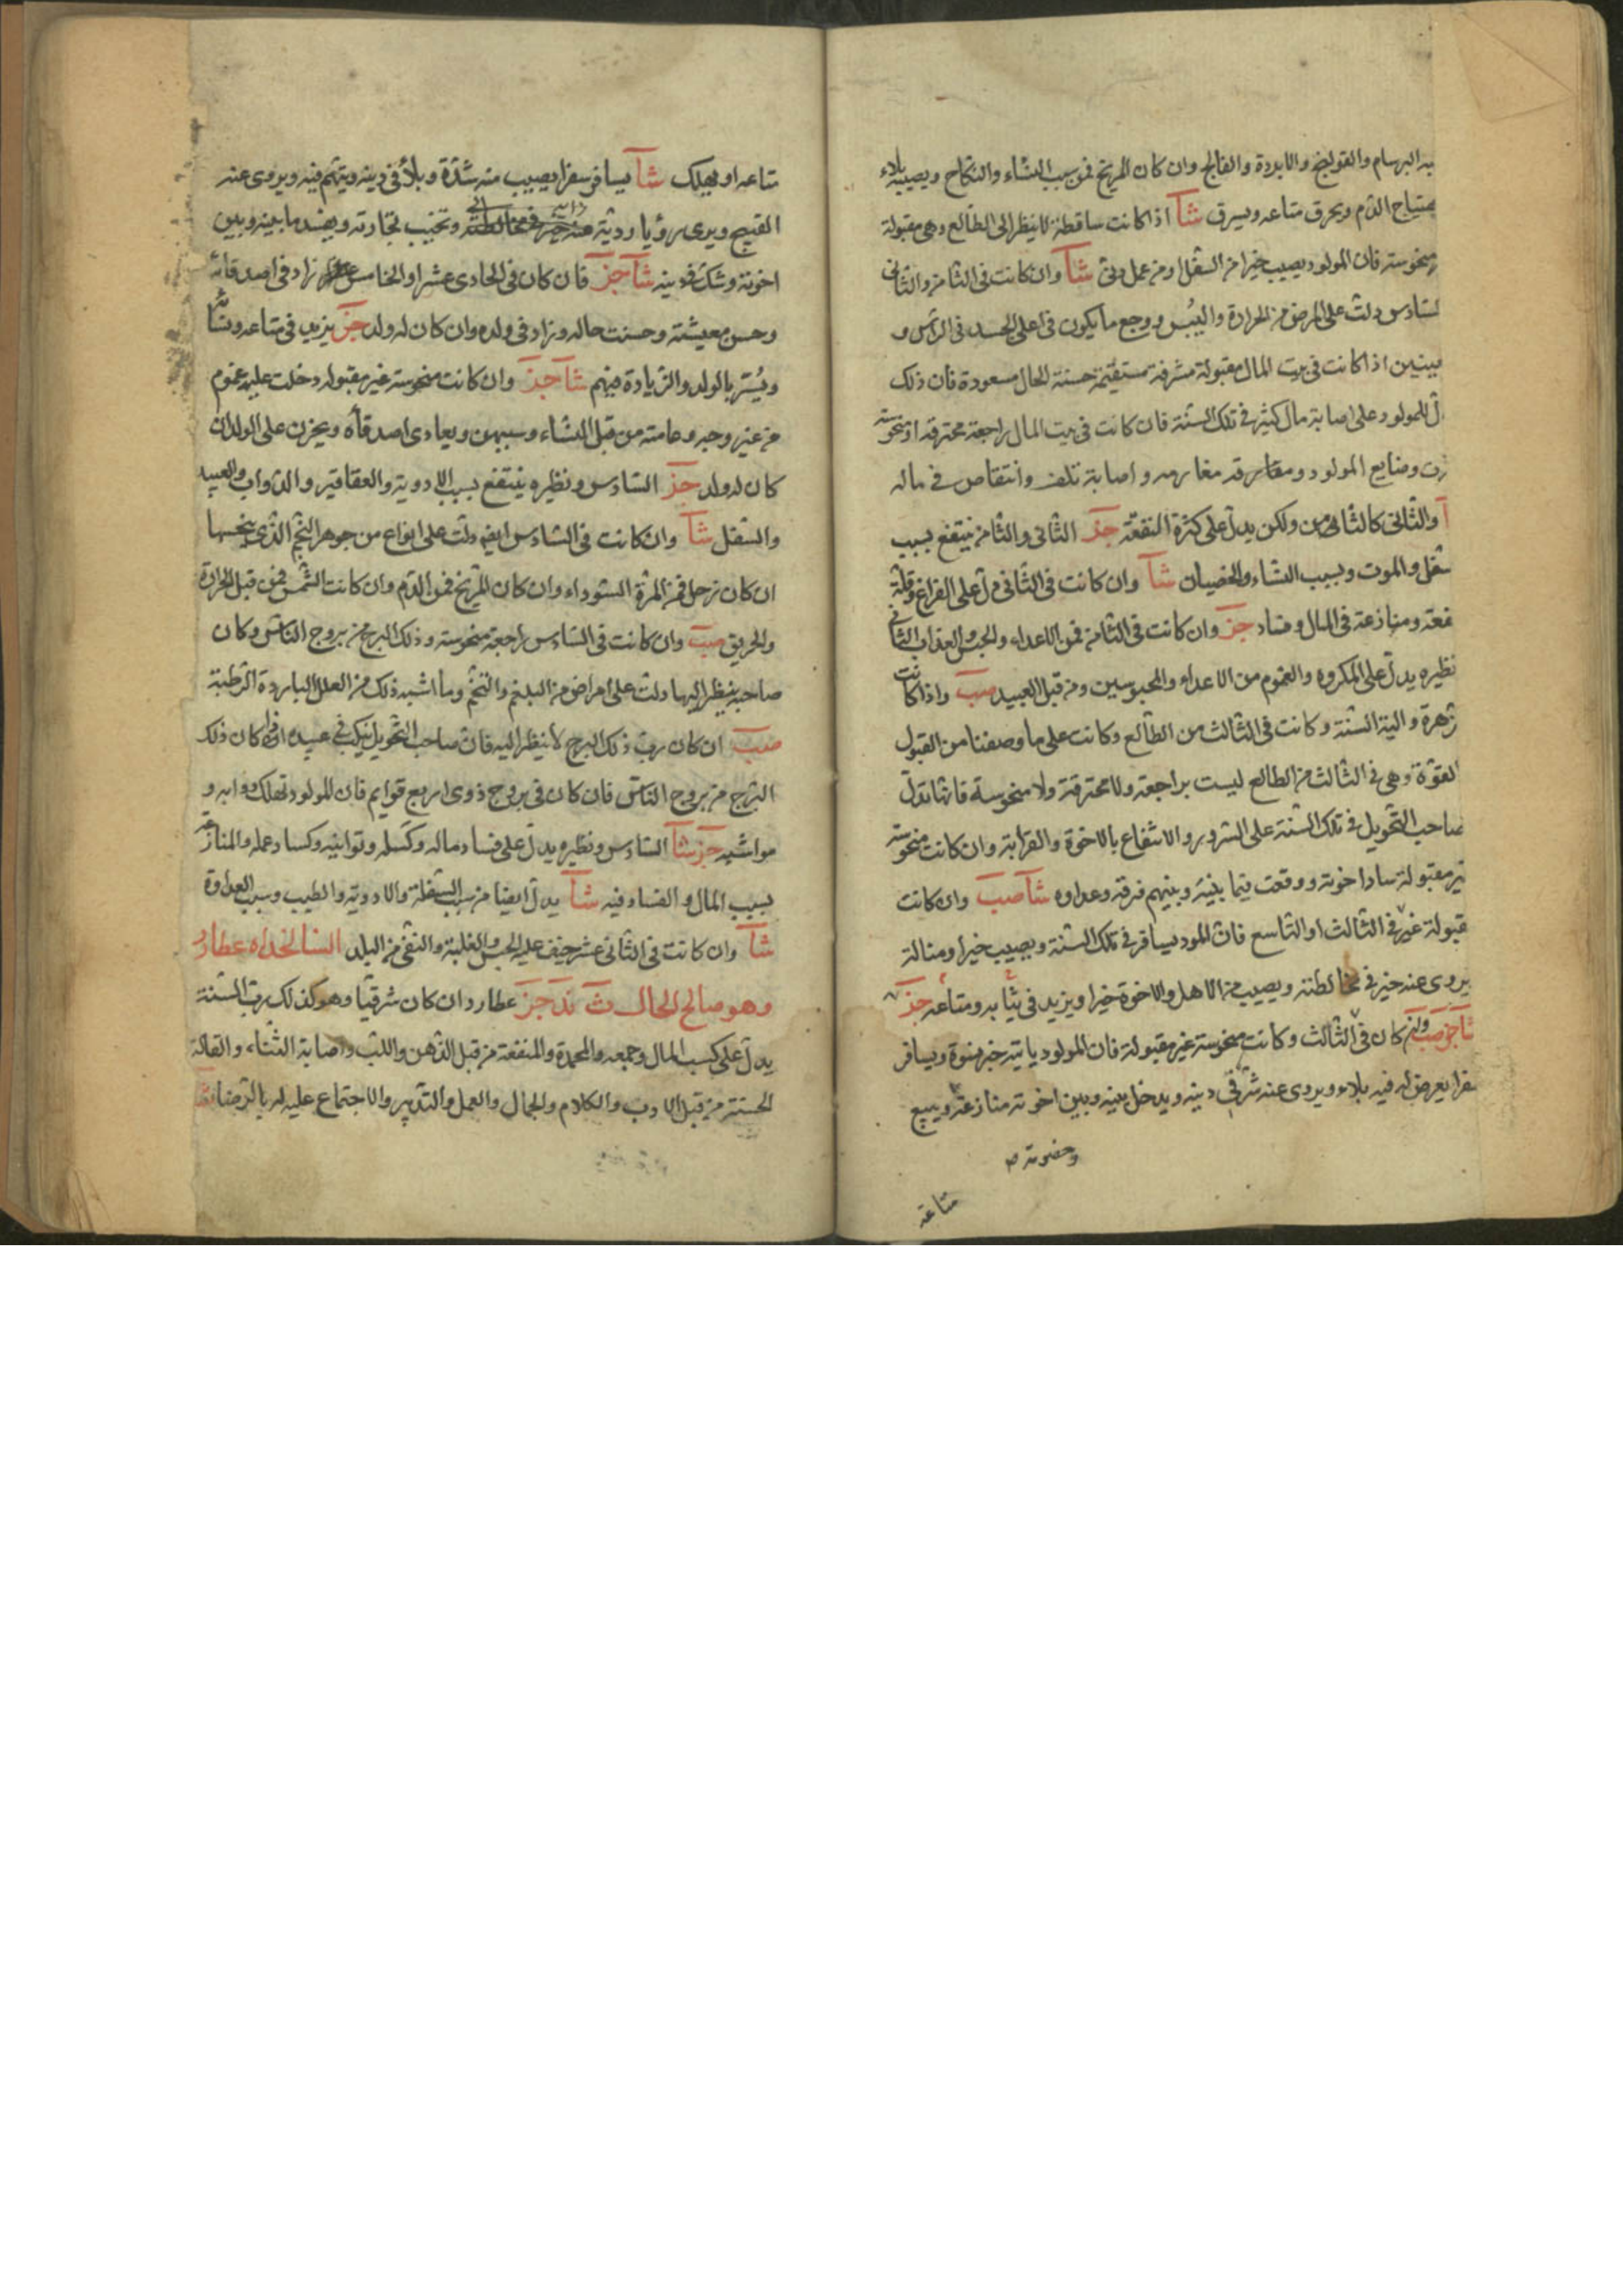 به البرسام والقولنج والابردة والفالج وان كان المريخ فمن سبب النساء والنكاح ويصيبه بلاء
بهتياج الدم ويحرق متاعه ويسرق شآ اذا كانت ساقطة لا ينظر الى الطالع وهى مقبولة
منحوسة فان المولود يصيب خيرا من السفل او من عمل دنى شآ وان كانت فى الثامن والثانى
لسادس دلت على المرض من الحرارة واليبس ووجع ما يكون فى اعلى الجسد فى الرأس و
اذا كانت فى بيت المال مقبولة مشرقة مستقيمة حسنة الحال مسعودة فان ذلك
ل للمولود على اصابة مال كثير فى تلك السنة فان كانت فى بيت المال راجعة محترقة او منحوسة
المولود ومفارقه مغارمه واصابة تلف وانتقاص فى ماله
آ والثانى كالثامن ولكن يدل على كثرة النفقة جز الثانى والثامن ينتفع بسبب
شغل والموت وبسبب النساء والخصيان شآ وان كانت فى الثانى دل على الفراغ وقلة
نفعة ومنازعة فى المال وفساد جز وان كانت فى الثامن فمن الاعداء والحبس والعذاب الثانى
نظيره يدل على المكروه والغموم من الاعداء والمحبوسين ومن قبل العبيد صب واذا كانت
زهرة والية السنة وكانت فى الثالث من الطالع وكانت على ما وصفنا من القبول
القوة وهى فى الثالث من الطالع ليست براجعة ولا محترقة ولا منحوسة فانها تدل
صاحب التحويل فى تلك السنة على السرور والانتفاع بالاخوة والقرابة وان كانت منحوسة
ير مقبولة سادا خوته ووقعت فيما بينه وبينهم فرقة وعداوه شآ صب وان كانت
قبولة غير فى الثالث او التاسع فان المود يسافر فى تلك السنة ويصيب خيرا ومنالة
يروى عنه خير فى مخالطته ويصيب من الاهل والاخوة خيرا ويزيد فى ثيابه ومتاعه جز
شآ جز صب وان كان فى الثالث وكانت منحوسة غير مقبولة فان المولود ياتيه خبر ويسافر
سفرا يعرض له فيه بلاء ويروى عنه شر فى دينه ويدخل بينه وبين اخوته منازعة ويبيع
وخصومة
متاعه
متاعه او يهلك شآ يسافر سفرا يصيب منه شدة وبلاء فى دينه ويتهم فيه ويروى عنه
القبيح ويرى رؤيا ردية وتخيب تجارته ويفسد ما بينه وبين
اخوته وشك فى دينه شآ جز فان كان فى الحادى عشر او الخامس زاد فى اصدقائه
وحسن معيشته وحسنت حاله وزاد فى ولده وان كان له ولد جز يزيد فى متاعه
ويُسَر بالولد والزيادة فيهم شآ جز وان كانت منحوسة غير مقبوله دخلت عليه غموم
من غير وجه وعامته من قبل النساء وسببهن ويعادى اصدقاه ويحزن على الولد ان
كان له ولد جز السادس ونظيره ينتفع بسبب الادوية والعقاقير والدواب والعبيد
والسفل شآ وان كانت فى السادس ايضا دلت على انواع من جوهر النجم الذى ينحسها
ان كان زحل فمن المرة السوداء وان كان المريخ فمن الدم وان كانت الشمس فمن قبل الحرارة
والحريق صب وان كانت فى السادس راجعة منحوسة وذلك البرج من بروج الناس وكان
صاحبه ينظر اليها دلت على امراض من البلغم والتخم وما اشبه ذلك من العلل الباردة الرطبة
صب ان كان رب ذلك البرج لا ينظر اليه فان صاحب التحويل ينكب فى عبيده ان كان ذلك
البرج من بروج الناس فان كان فى بروج ذوى اربع قوايم فان للمولود تهلك دوابه و
مواشيه جز شآ السادس ونظيره يدل على فساد ماله وكسله وتوانيه وكساد عمله والمنازعة
بسبب المال والفساد فيه شآ يدل ايضا من سبب السفلة والادوية والطيب وسبب العداوة
شآ وان كانت فى الثانى عشر خيف عليه الحبس والغلبة والنفى من البلد السالخداه عطارد
وهو صالح الحال ث ند جز عطارد ان كان شرقيا وهو كذلك رب السنة
يدل على كسب المال وجمعه والمحمدة والمنفعة من قبل الذهن واللب واصابة الثناء والقالة
الحسنة من قبل الادب والكلام والجمال والعمل والتدبير والاجتماع عليه له بالرضا